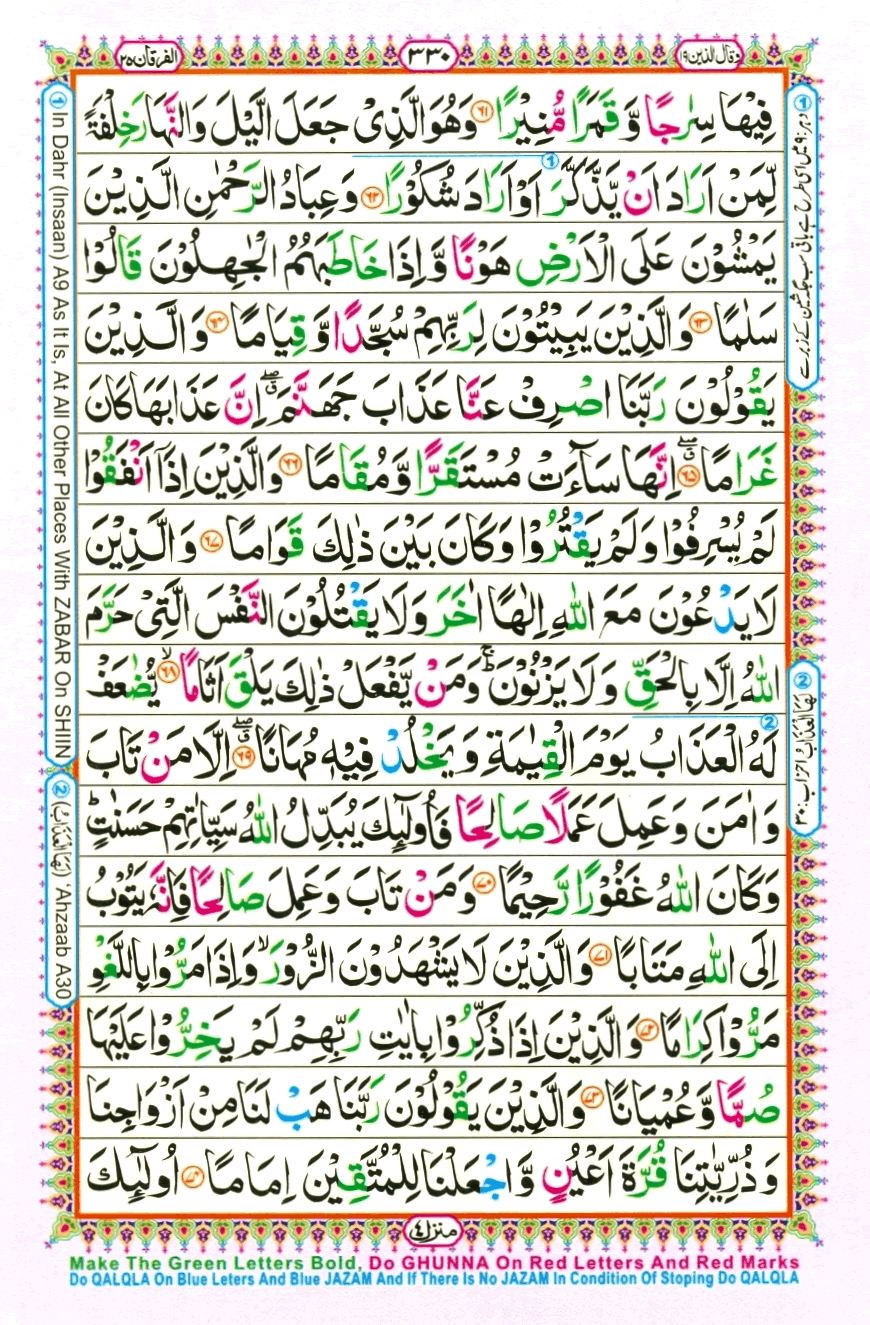 وقال الذین ۱۹
۳۳۰
الفرقان ۲۵
فِیْهَا سِرٰجًا وَّ قَمَرًا مُّنِیْرًا ﴿۶۱﴾ وَهُوَ الَّذِیْ جَعَلَ الَّیْلَ وَالنَّهَارَ خِلْفَةً
لِّمَنْ اَرَادَ اَنْ یَّذَّكَّرَ اَوْ اَرَادَ شُكُوْرًا ﴿۶۲﴾ وَعِبَادُ الرَّحْمٰنِ الَّذِیْنَ
یَمْشُوْنَ عَلَی الْاَرْضِ هَوْنًا وَّ اِذَا خَاطَبَهُمُ الْجٰهِلُوْنَ قَالُوْا
سَلٰمًا ﴿۶۳﴾ وَالَّذِیْنَ یَبِیْتُوْنَ لِرَبِّهِمْ سُجَّدًا وَّ قِیَامًا ﴿۶۴﴾ وَالَّذِیْنَ
یَقُوْلُوْنَ رَبَّنَا اصْرِفْ عَنَّا عَذَابَ جَهَنَّمَ ۖۗ اِنَّ عَذَابَهَا كَانَ
غَرَامًا ﴿۶۵﴾ ۖۗ اِنَّهَا سَآءَتْ مُسْتَقَرًّا وَّمُقَامًا ﴿۶۶﴾ وَالَّذِیْنَ اِذَاۤ اَنْفَقُوْا
لَمْ یُسْرِفُوْا وَلَمْ یَقْتُرُوْا وَكَانَ بَیْنَ ذٰلِكَ قَوَامًا ﴿۶۷﴾ وَالَّذِیْنَ
لَا یَدْعُوْنَ مَعَ اللّٰهِ اِلٰهًا اٰخَرَ وَلَا یَقْتُلُوْنَ النَّفْسَ الَّتِیْ حَرَّمَ
اللّٰهُ اِلَّا بِالْحَقِّ وَلَا یَزْنُوْنَ ۚ وَمَنْ یَّفْعَلْ ذٰلِكَ یَلْقَ اَثَامًا ﴿۶۸﴾ ۙ یُّضٰعَفْ
لَهُ الْعَذَابُ یَوْمَ الْقِیٰمَةِ وَیَخْلُدْ فِیْهٖ مُهَانًا ﴿۶۹﴾ ۖۗ اِلَّا مَنْ تَابَ
وَاٰمَنَ وَعَمِلَ عَمَلًا صَالِحًا فَاُولٰٓئِكَ یُبَدِّلُ اللّٰهُ سَیِّاٰتِهِمْ حَسَنٰتٍ ؕ
وَكَانَ اللّٰهُ غَفُوْرًا رَّحِیْمًا ﴿۷۰﴾ وَمَنْ تَابَ وَعَمِلَ صَالِحًا فَاِنَّهٗ یَتُوْبُ
اِلَی اللّٰهِ مَتَابًا ﴿۷۱﴾ وَالَّذِیْنَ لَا یَشْهَدُوْنَ الزُّوْرَ ۙ وَاِذَا مَرُّوْا بِاللَّغْوِ
مَرُّوْا كِرَامًا ﴿۷۲﴾ وَالَّذِیْنَ اِذَا ذُكِّرُوْا بِاٰیٰتِ رَبِّهِمْ لَمْ یَخِرُّوْا عَلَیْهَا
صُمًّا وَّعُمْیَانًا ﴿۷۳﴾ وَالَّذِیْنَ یَقُوْلُوْنَ رَبَّنَا هَبْ لَنَا مِنْ اَزْوَاجِنَا
وَذُرِّیّٰتِنَا قُرَّةَ اَعْیُنٍ وَّاجْعَلْنَا لِلْمُتَّقِیْنَ اِمَامًا ﴿۷۴﴾ اُولٰٓئِكَ
منزل ٤
① In Dahr (Insaan) A9 As It Is, At All Other Places With ZABAR On SHIN
② (لَهَا الْعَذَابُ) 'Ahzaab A30
② لَهَا الْعَذَابُ احزاب: ۳۰
Make The Green Letters Bold, Do GHUNNA On Red Letters And Red Marks
Do QALQLA On Blue Leters And Blue JAZAM And If There Is No JAZAM In Condition Of Stoping Do QALQLA